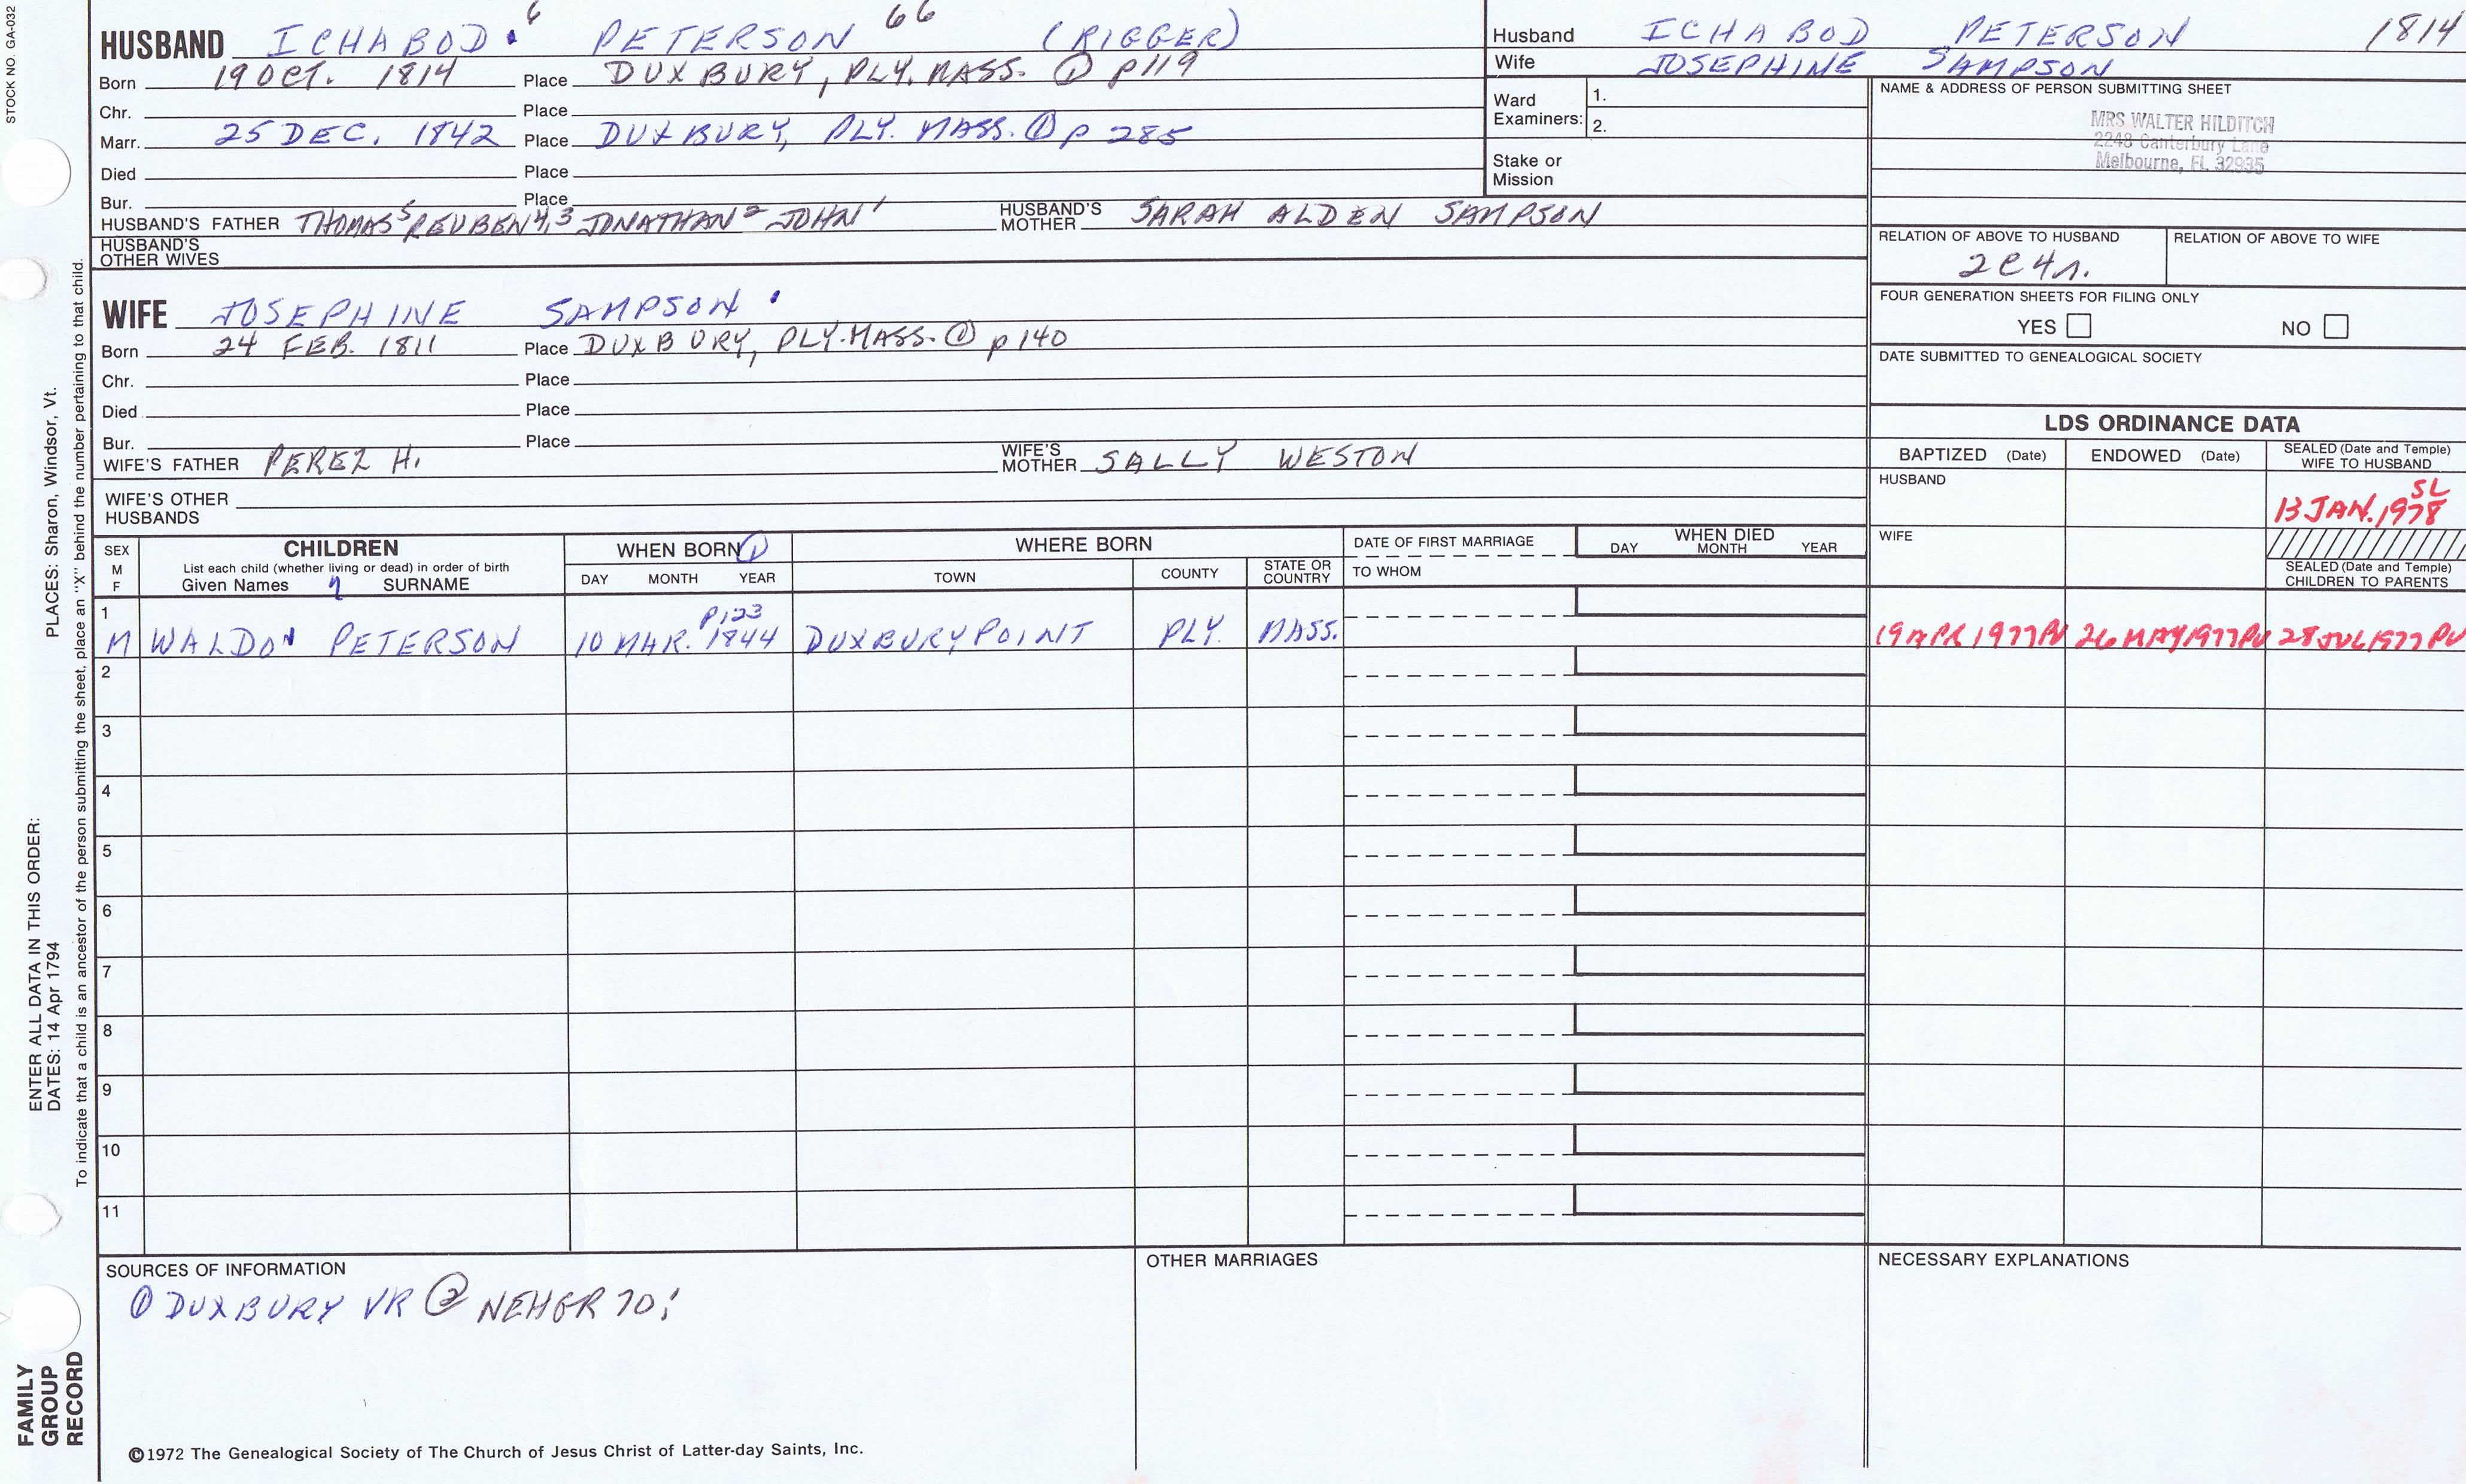 STOCK NO. GA-032
HUSBAND ICHABOD 6 PETERSON 66 (RIGGER)
Born 19 OCT. 1814 Place DUXBURY, PLY. MASS. ① p119
Chr. Place
Marr. 25 DEC. 1842 Place DUXBURY, PLY. MASS. ① p 285
Died Place
Bur. Place
HUSBAND'S FATHER THOMAS 5 REUBEN 4,3 JONATHAN 2 JOHN 1 HUSBAND'S MOTHER SARAH ALDEN SAMPSON
HUSBAND'S OTHER WIVES
WIFE JOSEPHINE SAMPSON
Born 24 FEB. 1811 Place DUXBURY, PLY. MASS. ① p140
Chr. Place
Died Place
Bur. Place
WIFE'S FATHER PEREZ H. WIFE'S MOTHER SALLY WESTON
WIFE'S OTHER HUSBANDS
Husband ICHABOD PETERSON 1814
Wife JOSEPHINE SAMPSON
Ward Examiners: 1.
2.
Stake or Mission
NAME & ADDRESS OF PERSON SUBMITTING SHEET
MRS WALTER HILDITCH
2248 Canterbury Lane
Melbourne, FL 32935
RELATION OF ABOVE TO HUSBAND RELATION OF ABOVE TO WIFE
2C4r.
FOUR GENERATION SHEETS FOR FILING ONLY
YES NO
DATE SUBMITTED TO GENEALOGICAL SOCIETY
LDS ORDINANCE DATA
BAPTIZED (Date) ENDOWED (Date) SEALED (Date and Temple) WIFE TO HUSBAND
HUSBAND 13 JAN. 1978 SL
WIFE
SEALED (Date and Temple) CHILDREN TO PARENTS
SEX M F CHILDREN WHEN BORN ① WHERE BORN DATE OF FIRST MARRIAGE WHEN DIED
List each child (whether living or dead) in order of birth
Given Names 7 SURNAME DAY MONTH YEAR TOWN COUNTY STATE OR COUNTRY TO WHOM DAY MONTH YEAR
1 P123
M WALDON PETERSON 10 MAR. 1844 DUXBURY POINT PLY. MASS. 19 APR 1977 PV 26 MAY 1977 PV 28 JUL 1977 PV
2
3
4
5
6
7
8
9
10
11
SOURCES OF INFORMATION OTHER MARRIAGES NECESSARY EXPLANATIONS
① DUXBURY VR ② NEHGR 70:
©1972 The Genealogical Society of The Church of Jesus Christ of Latter-day Saints, Inc.
ENTER ALL DATA IN THIS ORDER:
DATES: 14 Apr 1794 PLACES: Sharon, Windsor, Vt.
To indicate that a child is an ancestor of the person submitting the sheet, place an "X" behind the number pertaining to that child.
FAMILY
GROUP
RECORD